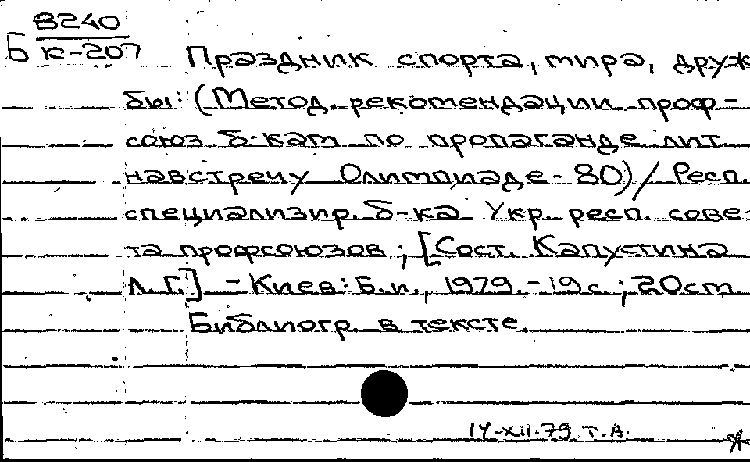 Б 8240
К-207
Праздник спорта, мира, друж
бы: (Метод. рекомендации проф-
союз. б-кам по пропаганде лит.
навстречу Олимпиаде-80) / Респ.
специализир. б-ка Укр. респ. сове-
та профсоюзов; [Сост. Капустина
Л. Г.] - Киев: Б. и., 1979. - 19 с.; 20 см
Библиогр. в тексте.
14-XII-79 Т. А.